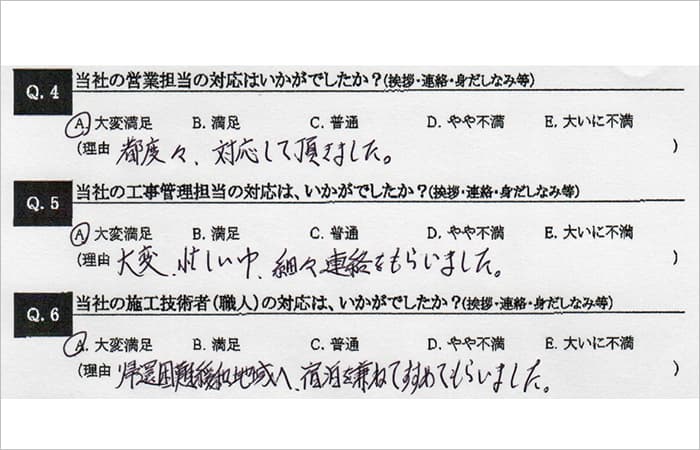 Q.4 当社の営業担当の対応はいかがでしたか？(挨拶・連絡・身だしなみ等)
A. 大変満足 B. 満足 C. 普通 D. やや不満 E. 大いに不満
(理由 都度々、対応して頂きました。 )
Q.5 当社の工事管理担当の対応は、いかがでしたか？(挨拶・連絡・身だしなみ等)
A. 大変満足 B. 満足 C. 普通 D. やや不満 E. 大いに不満
(理由 大変、忙しい中、細々連絡をもらいました。 )
Q.6 当社の施工技術者(職人)の対応は、いかがでしたか？(挨拶・連絡・身だしなみ等)
A. 大変満足 B. 満足 C. 普通 D. やや不満 E. 大いに不満
(理由 帰還困難緩和地域へ、宿泊を兼ねてすすめてもらいました。 )